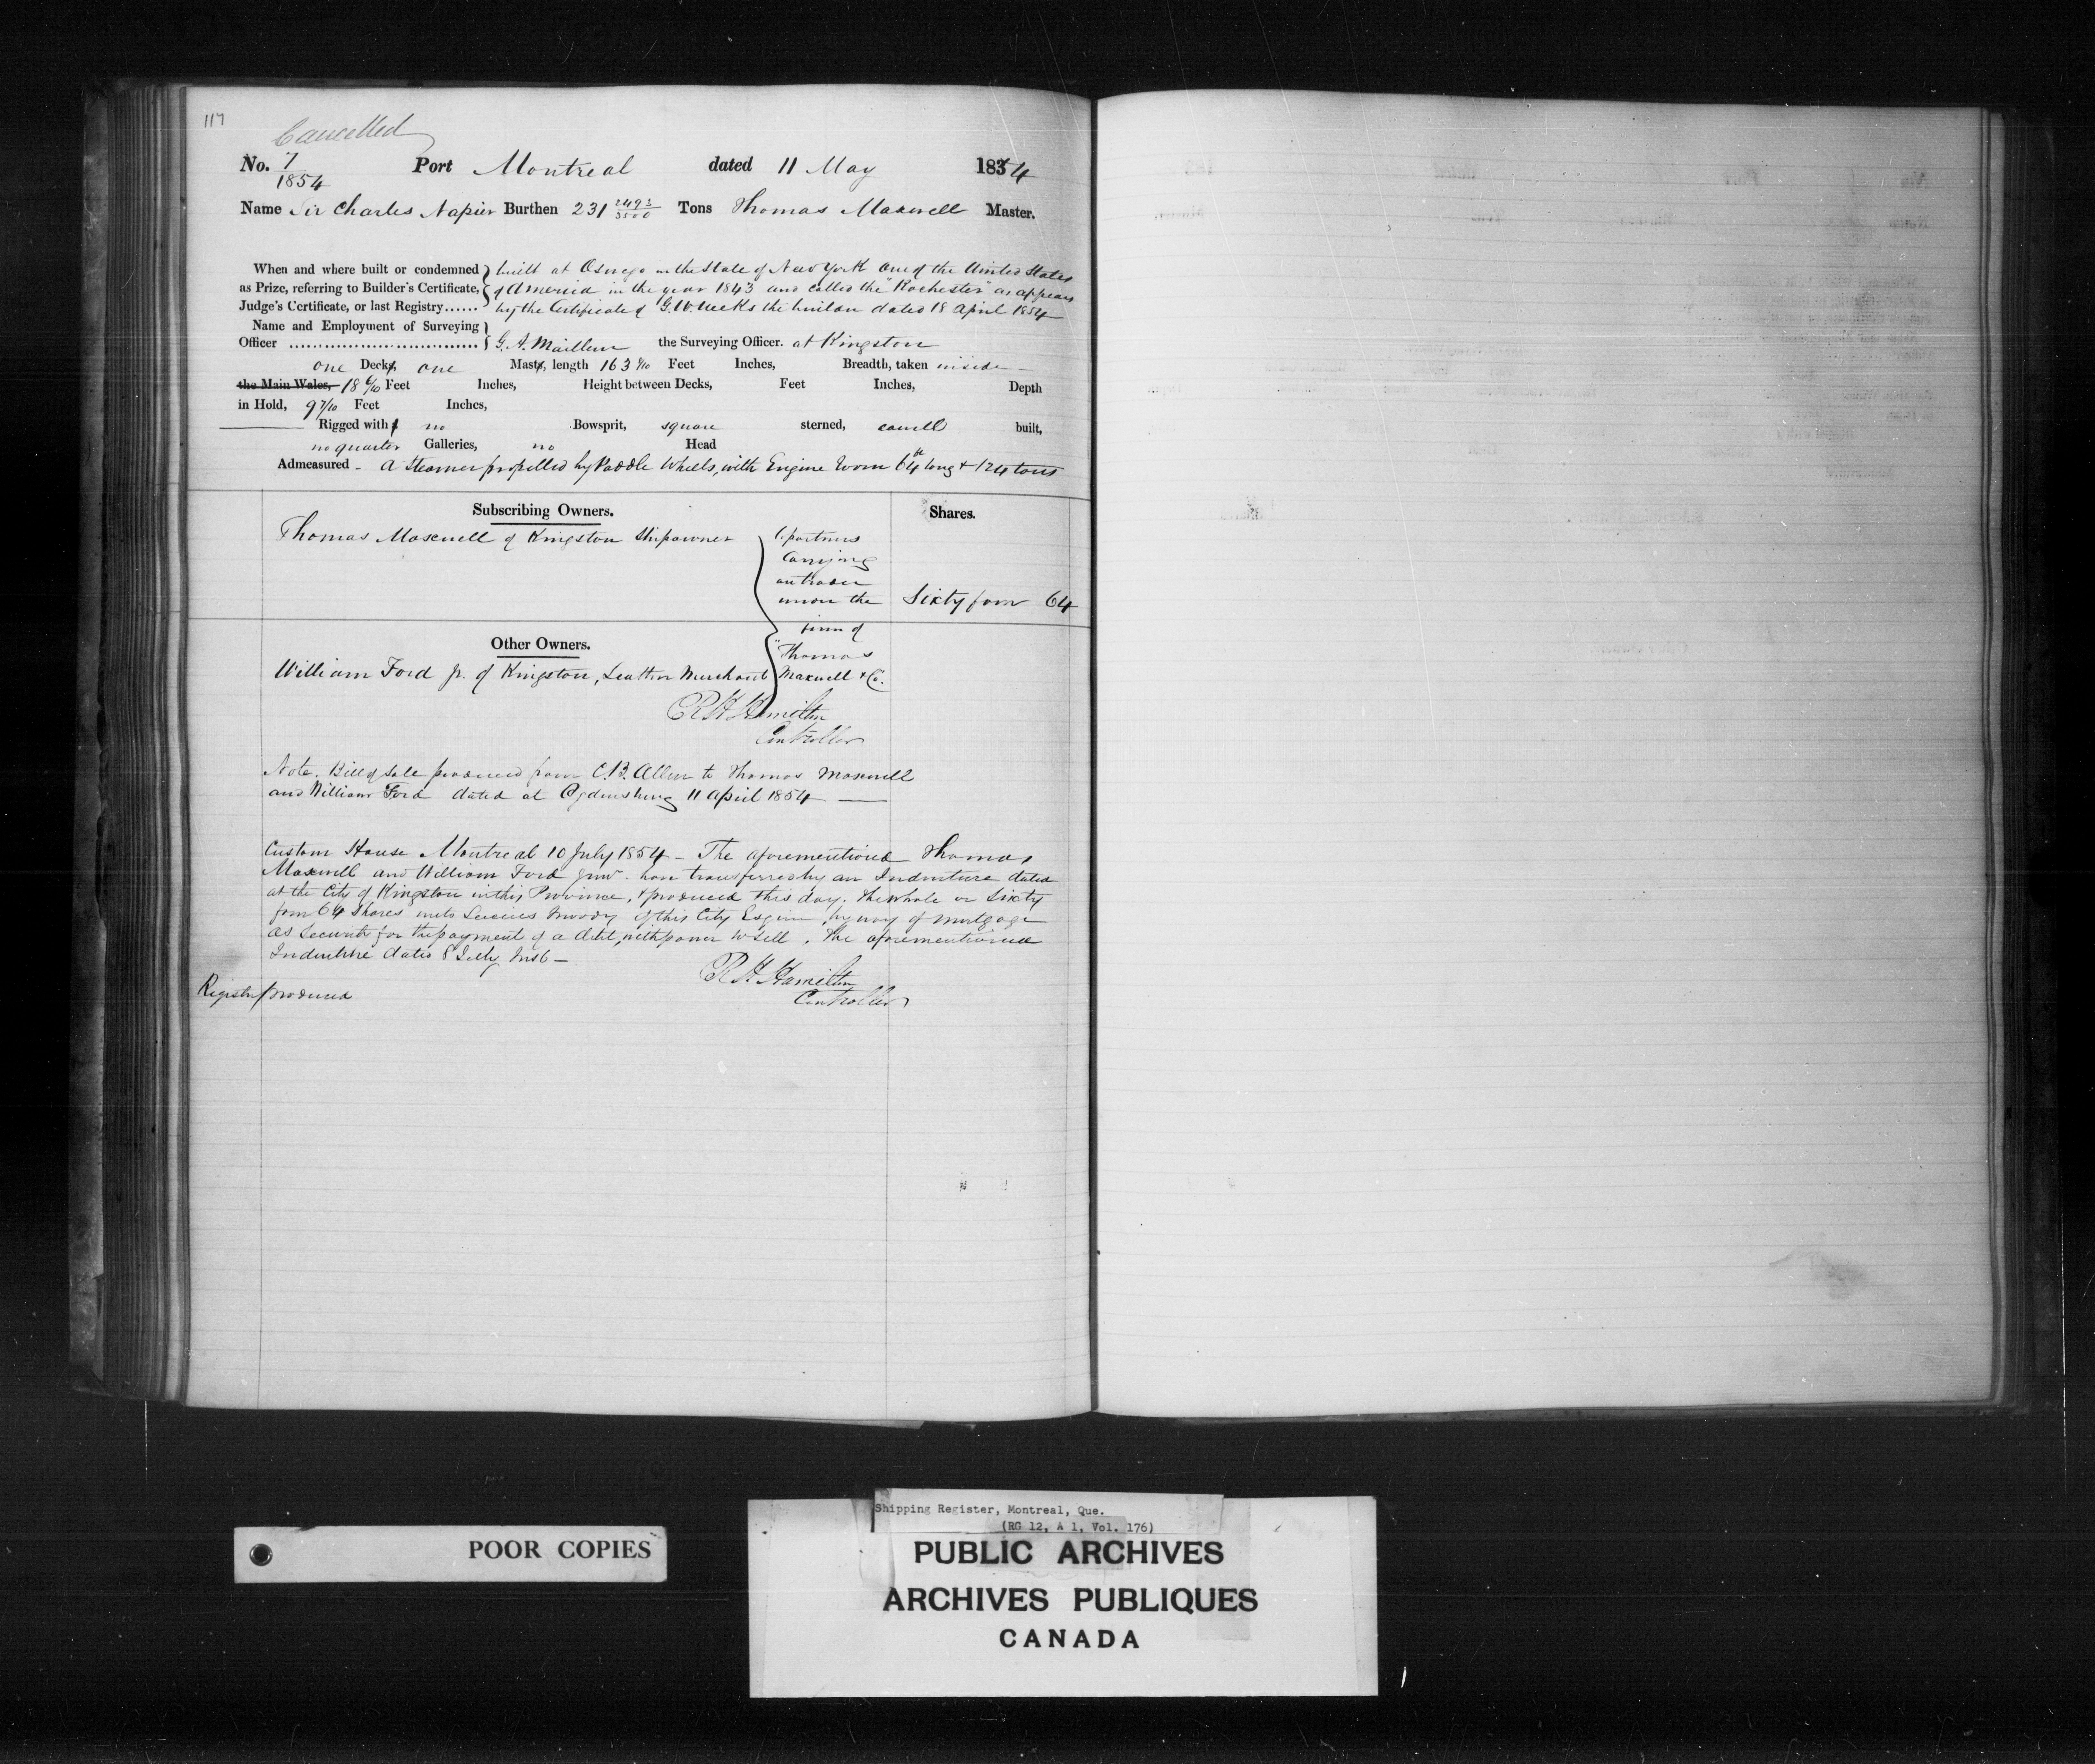 117
Cancelled
No. 7/1854 Port Montreal dated 11 May 1854
Name Sir Charles Napier Burthen 231 2493/3500 Tons Thomas Maxwell Master.
When and where built or condemned built at Oswego in the State of New York One of the United States
as Prize, referring to Builder's Certificate, of America in the year 1843 and called the "Rochester" as appears
Judge's Certificate, or last Registry...... by the Certificate of G. W. Weeks the builder dated 18 April 1854
Name and Employment of Surveying
Officer .............................. G. A. the Surveying Officer. at Kingston
one Deck, one Mast, length 163 Feet Inches, Breadth, taken inside
the Main Wales, 18 6/10 Feet Inches, Height between Decks, Feet Inches, Depth
in Hold, 9 7/10 Feet Inches,
Rigged with no Bowsprit, square sterned, carvel built,
no quarter Galleries, no Head
Admeasured - A Steamer propelled by Paddle Wheels, with Engine Room 64 ft long & 124 tons
Subscribing Owners. Shares.
Thomas Maxwell of Kingston Shipowner Copartners
Carrying
on trade
under the Sixty four 64
firm of
Other Owners.
"Thomas
William Ford Jr. of Kingston, Leather Merchant Maxwell & Co.
R H Hamilton
Controller
Note. Bill of Sale produced from C. B. Allen to Thomas Maxwell
and William Ford dated at Ogdensburg 11 April 1854
Custom House Montreal 10 July 1854 - The aforementioned Thomas
Maxwell and William Ford Junr. have transferred by an Indenture dated
at the City of Kingston in this Province, & produced this day. the whole or Sixty
four 64 Shares unto Moody of this City Esquire, by way of Mortgage
as Security for the payment of a debt, with power to Sell. The aforementioned
Indenture dated 8 July Inst -
R H Hamilton
Controller
Register produced
POOR COPIES
Shipping Register, Montreal, Que.
(RG 12, A 1, Vol. 176)
PUBLIC ARCHIVES
ARCHIVES PUBLIQUES
CANADA